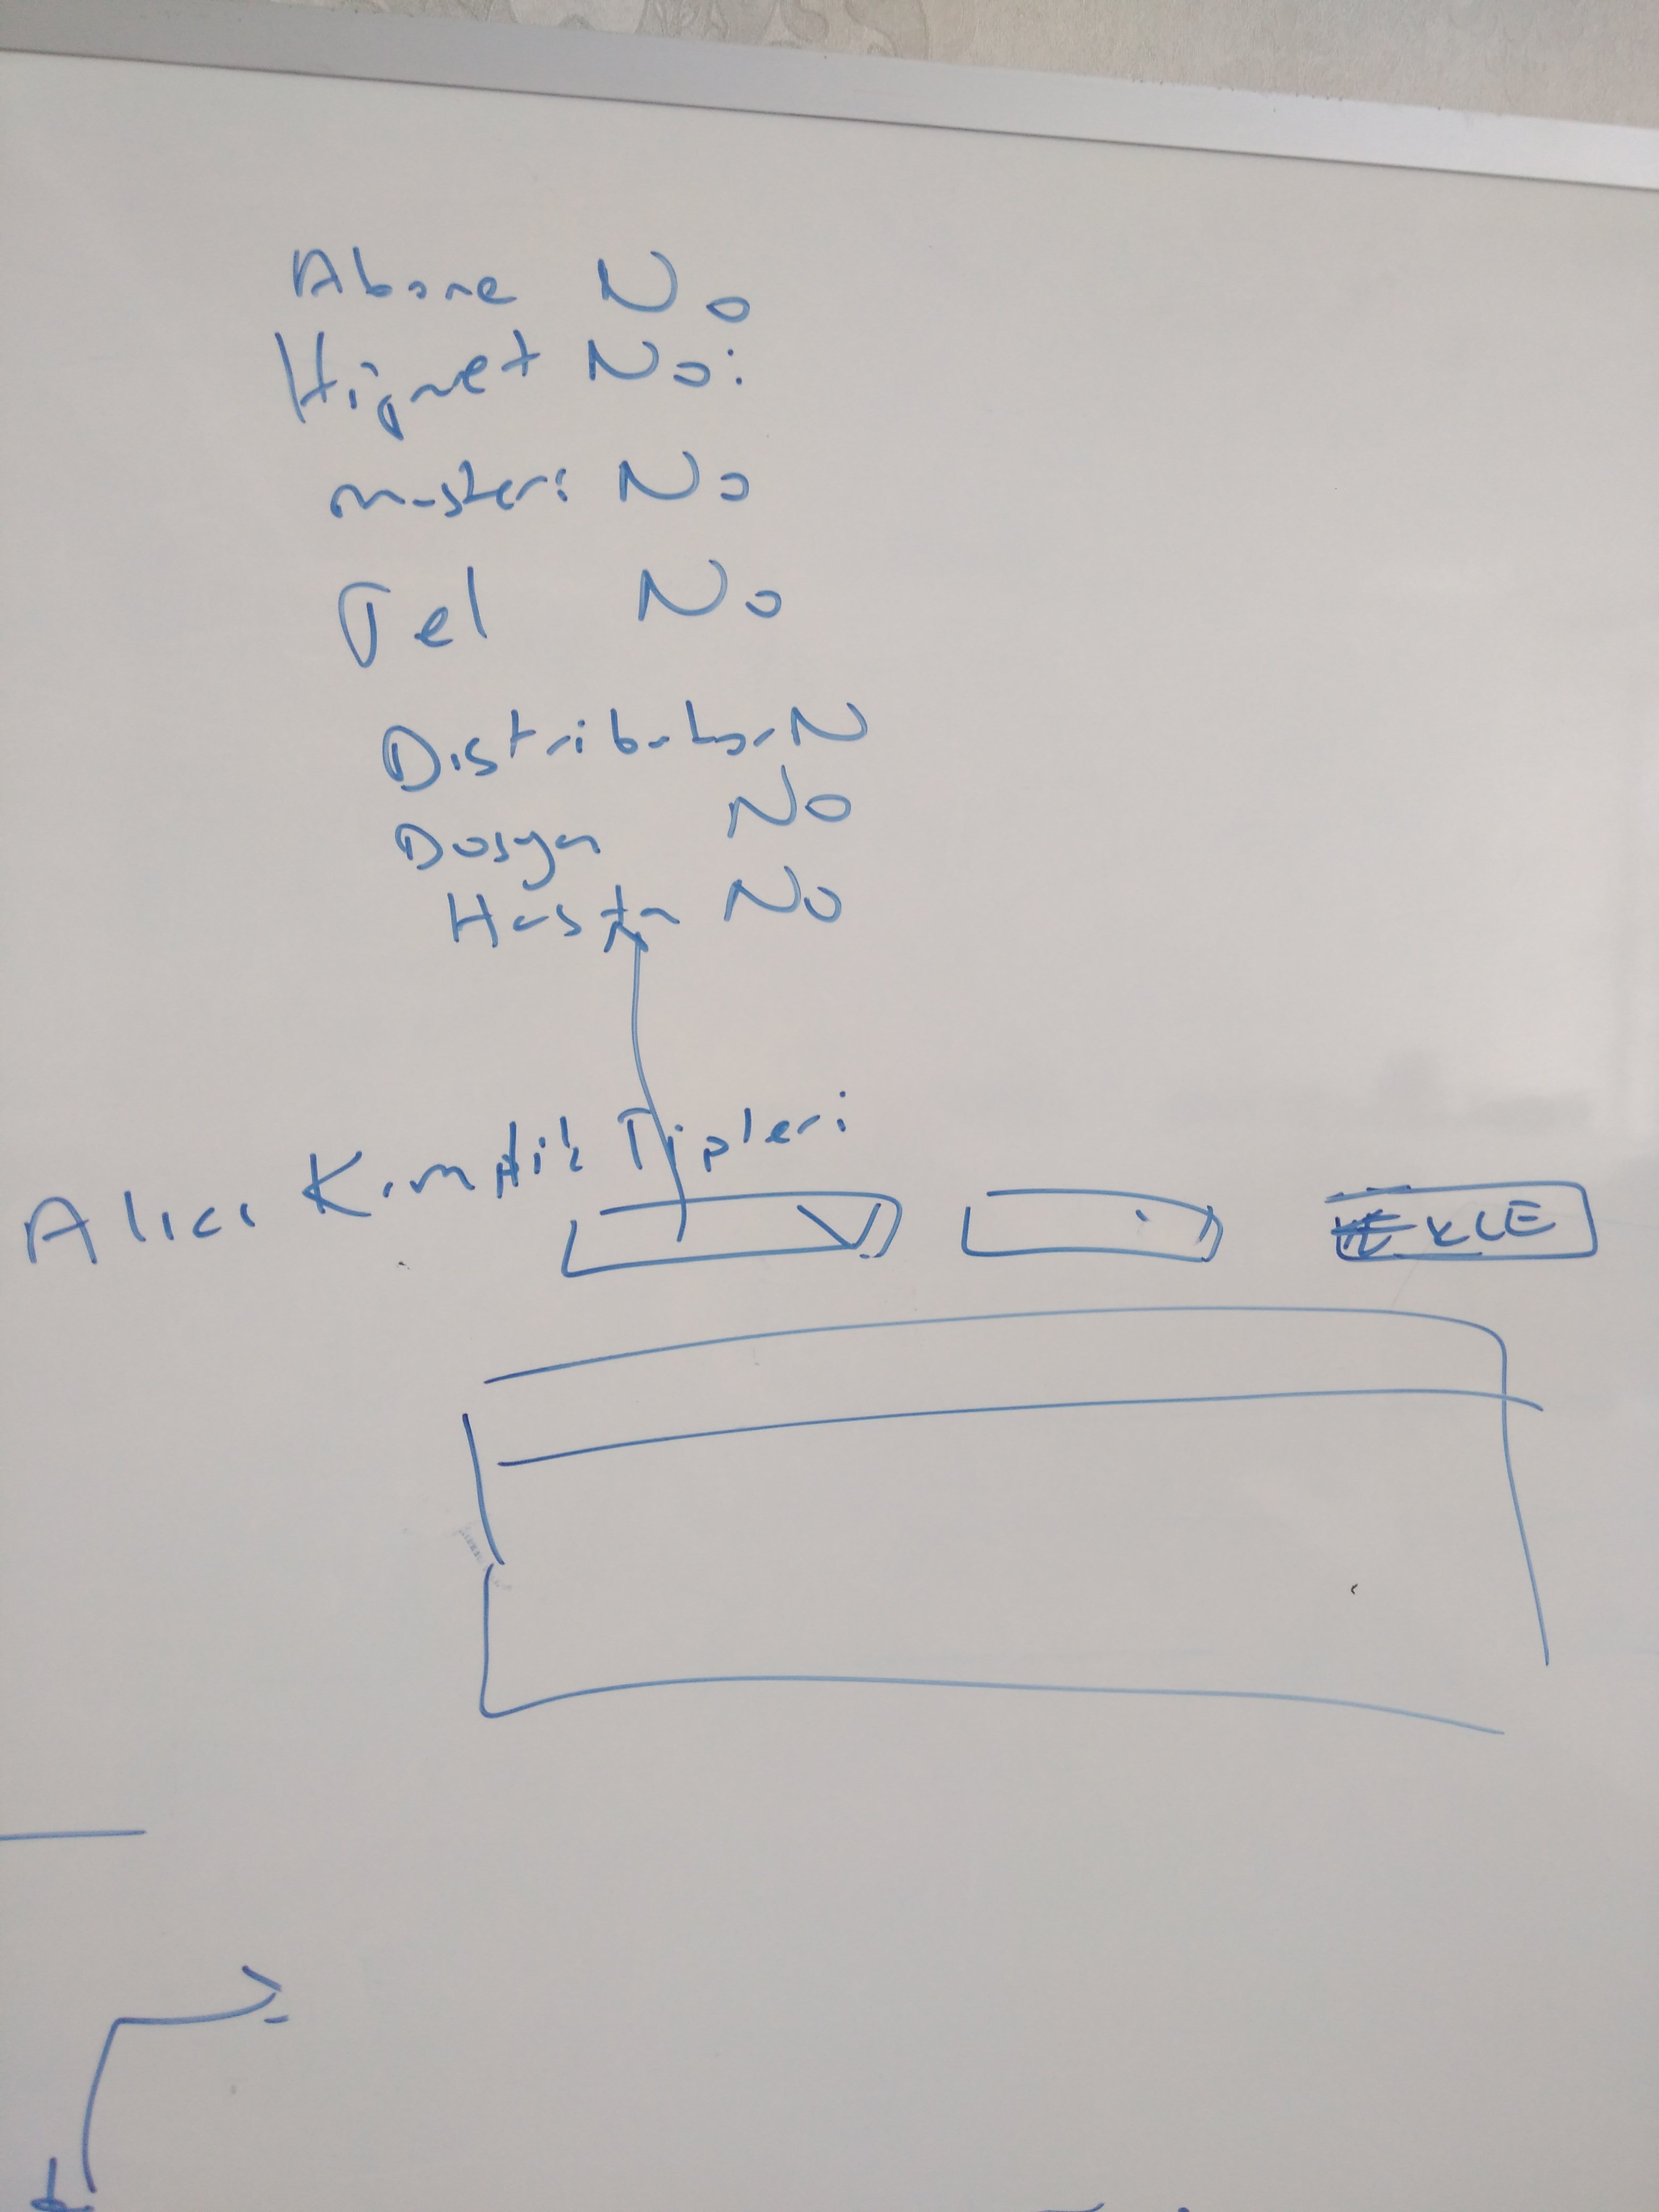 Abone No
Hizmet No:
musteri No
Tel No
Distributor N
Dosya No
Hasta No
Alıcı Kimlik Tipleri
EKLE